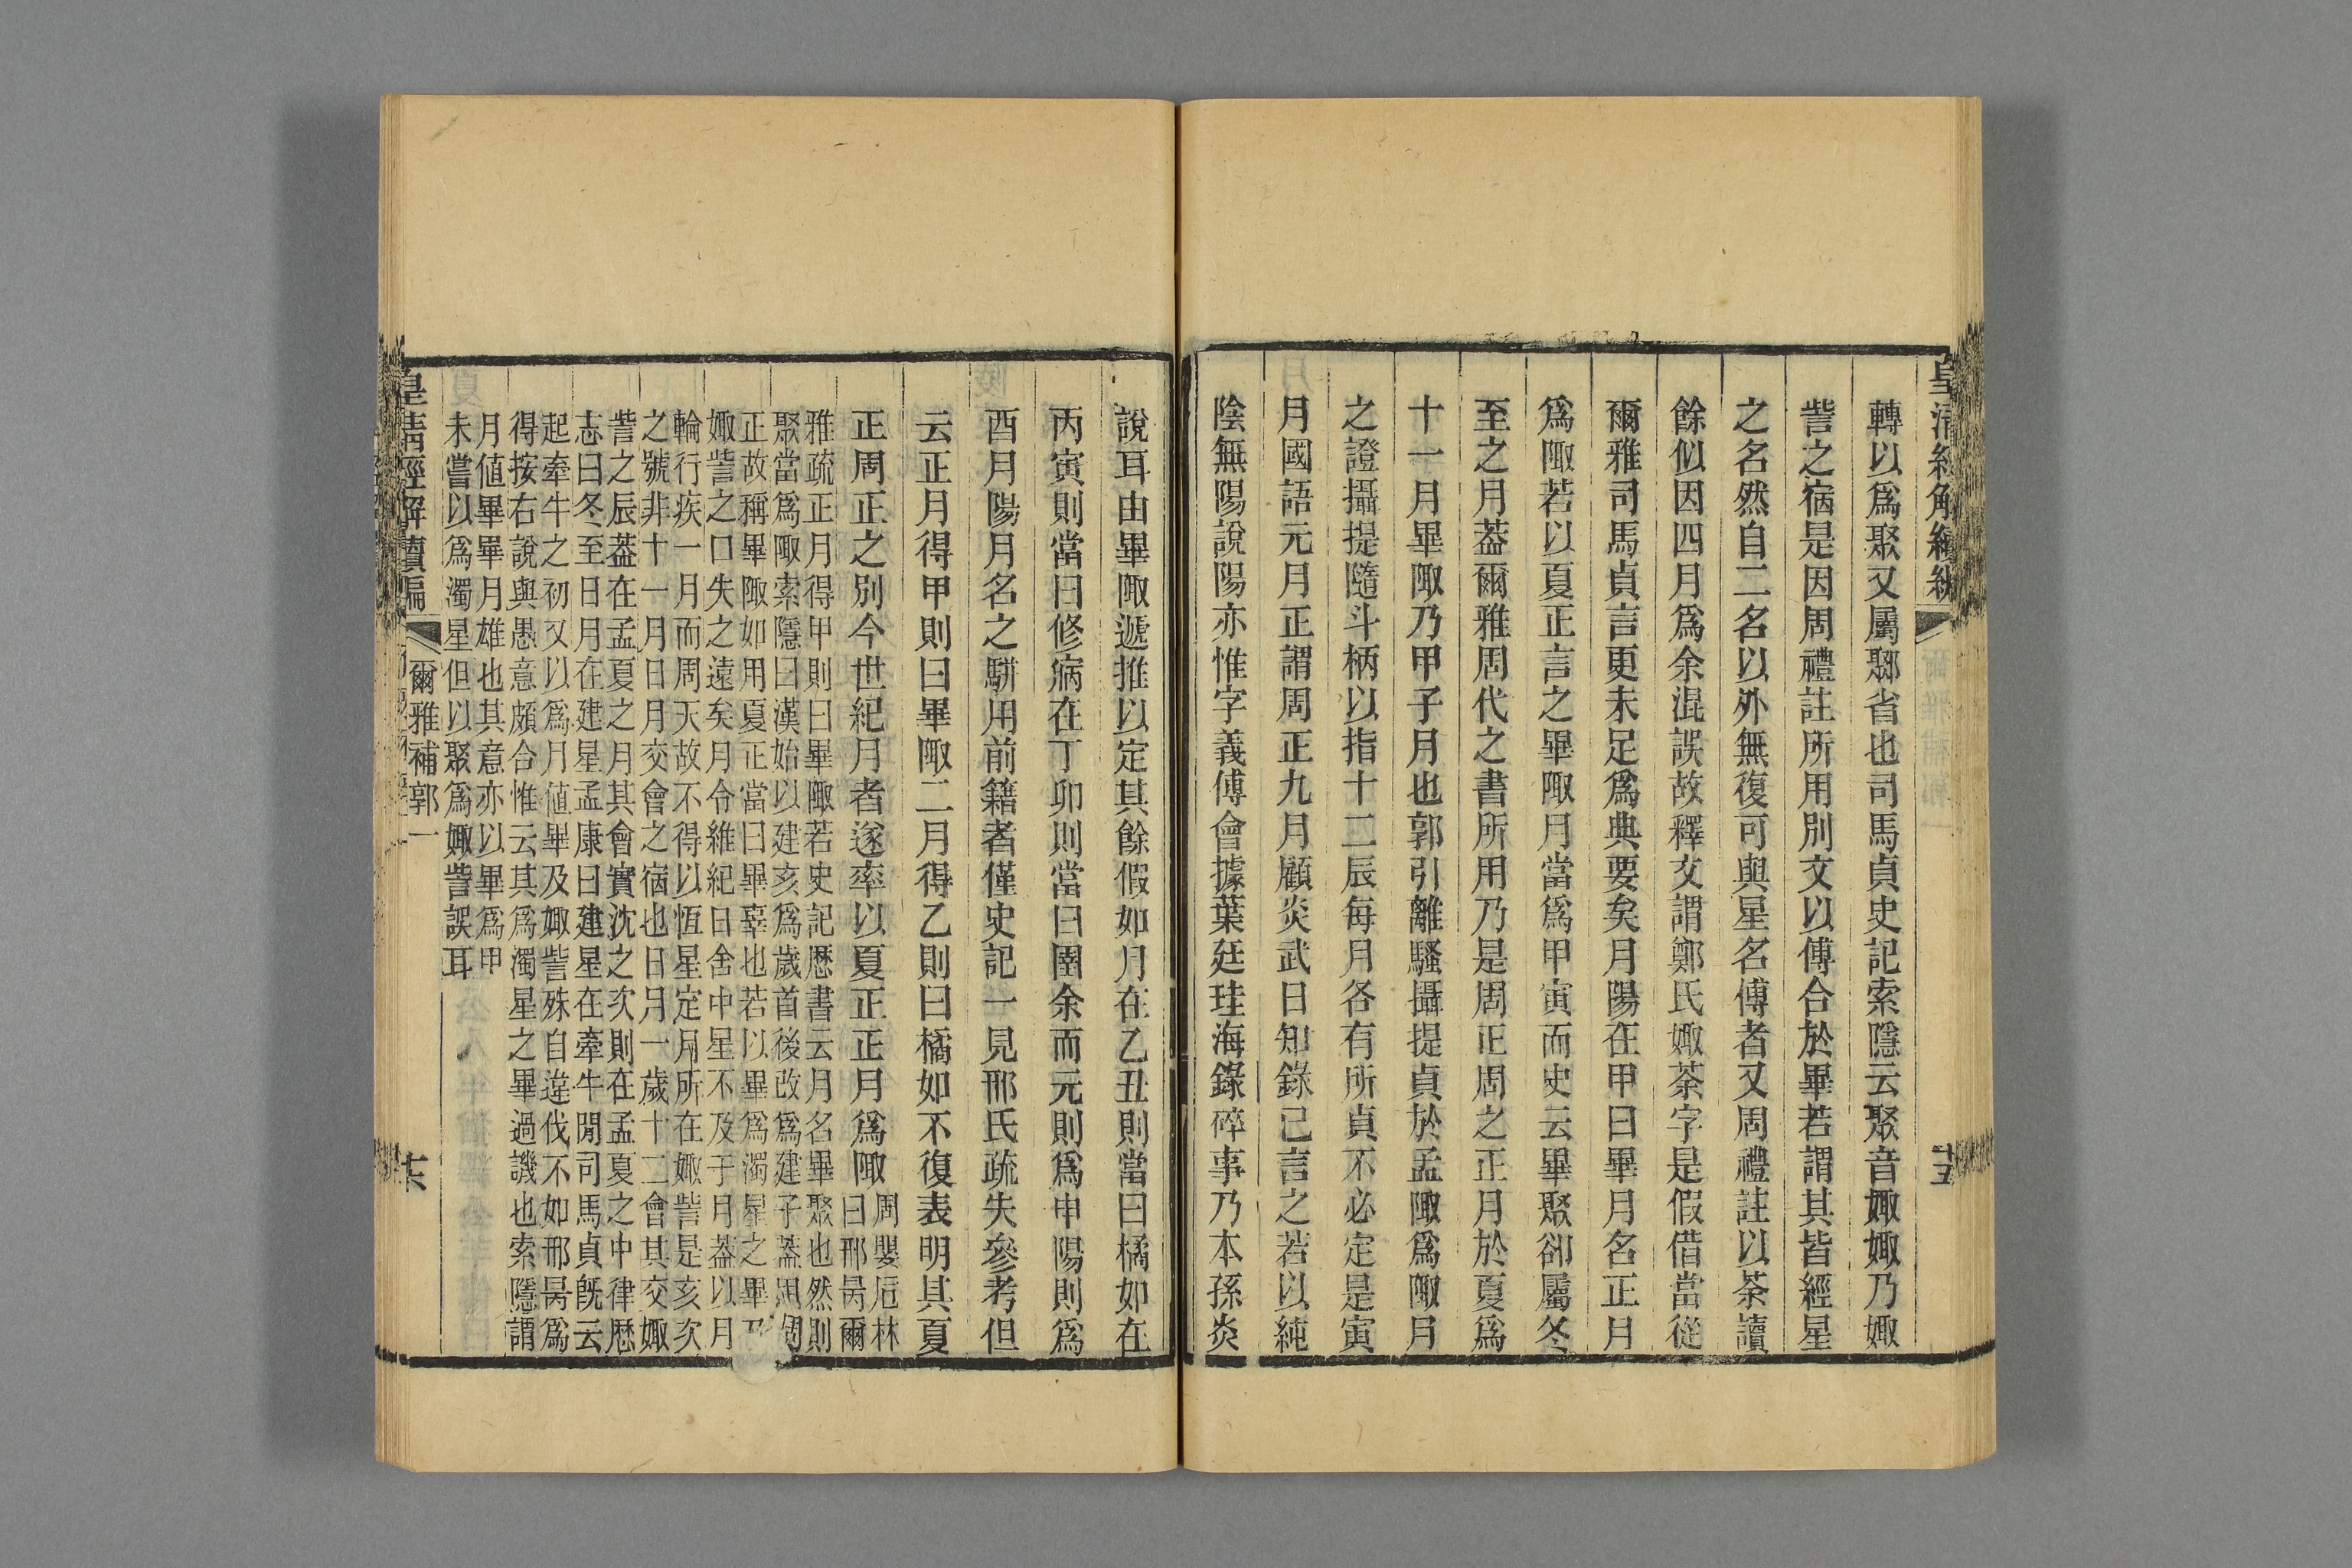 轉以爲聚又屬鄹省也司馬貞史記索隱云聚音娵娵乃娵
訾之宿是因周禮註所用別文以傅合於畢若謂其皆經星
之名然自二名以外無復可與星名傅者又周禮註以荼讀
餘似因四月爲余混誤故釋文謂鄭氏娵荼字是假借當從
爾雅司馬貞言更未足爲典要矣月陽在甲曰畢月名正月
爲陬若以夏正言之畢陬月當爲甲寅而史云畢聚卻屬冬
至之月葢爾雅周代之書所用乃是周正周之正月於夏爲
十一月畢陬乃甲子月也郭引離騷攝提貞於孟陬爲陬月
之證攝提隨斗柄以指十二辰每月各有所貞不必定是寅
月國語元月正謂周正九月顧炎武日知錄已言之若以純
陰無陽說陽亦惟字義傅會據葉廷珪海錄碎事乃本孫炎
說耳由畢陬遞推以定其餘假如月在乙丑則當曰橘如在
丙寅則當曰修寎在丁卯則當曰圉余而元則爲申陽則爲
酉月陽月名之駢用前籍者僅史記一見邢氏疏失參考但
云正月得甲則曰畢陬二月得乙則曰橘如不復表明其夏
正周正之別今世紀月者遂率以夏正正月爲陬
周嬰卮林
曰邢昺爾
雅疏正月得甲則曰畢陬若史記歷書云月名畢聚也然則
聚當爲陬索隱曰漢始以建亥爲歲首後改爲建子葢用周
正故稱畢陬如用夏正當曰畢辜也若以畢爲濁星之畢乃
娵訾之口失之遠矣月令維紀日舍中星不及于月葢以月
輪行疾一月而周天故不得以恆星定月所在娵訾是亥次
之號非十一月日月交會之宿也日月一歲十二會其交娵
訾之辰葢在孟夏之月其會實沈之次則在孟夏之中律歷
志曰冬至日月在建星孟康曰建星在牽牛閒司馬貞旣云
起牽牛之初又以爲月値畢及娵訾殊自違伐不如邢昺爲
得按右說與愚意頗合惟云其爲濁星之畢過譏也索隱謂
月値畢畢月雄也其意亦以畢爲甲
未嘗以爲濁星但以聚爲娵訾誤耳
皇淸經解續編
爾雅補郭一